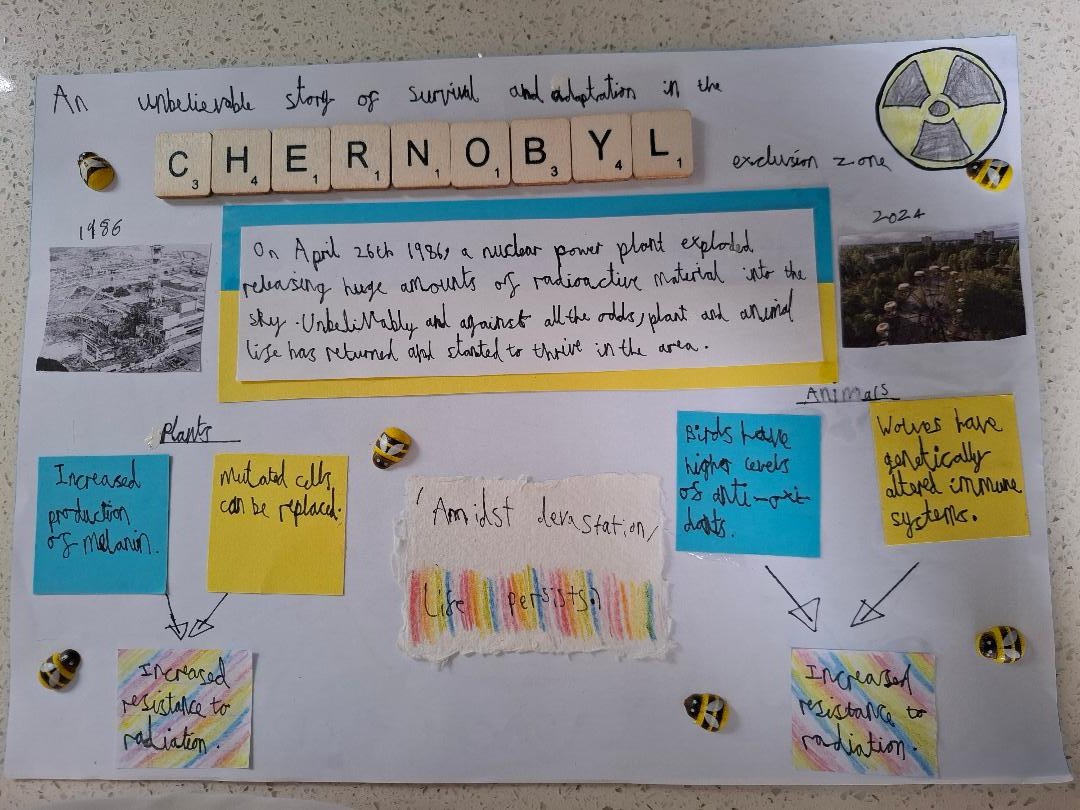 An unbelievable story of survival and adaptation in the
CHERNOBYL
3 4 1 1 1 1 3 4 1
exclusion zone
1986
2024
On April 26th 1986, a nuclear power plant exploded
releasing huge amounts of radioactive material into the
sky. Unbelivably and against all the odds, plant and animal
life has returned and started to thrive in the area.
Plants
Increased
production
of melanin.
Mutated cells
can be replaced.
'Amidst devastation,
Life persists'
Animals
Birds have
higher levels
of anti-oxi-
dants.
Wolves have
genetically
altered immune
systems.
Increased
resistance to
radiation.
Increased
resistance to
radiation.